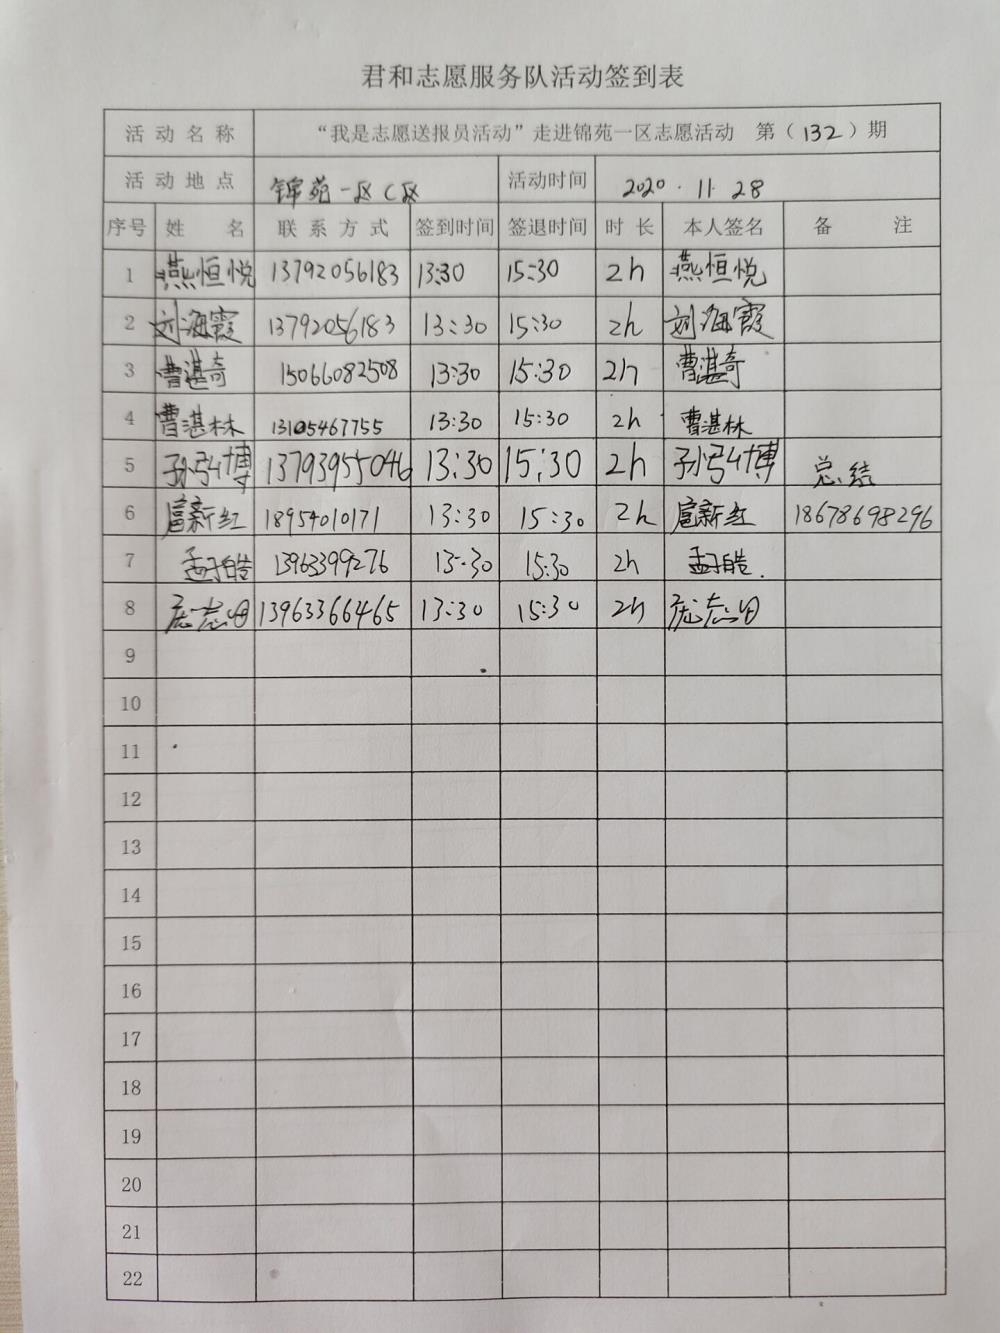 君和志愿服务队活动签到表
活动名称 “我是志愿送报员活动”走进锦苑一区志愿活动 第（132）期
活动地点 锦苑一区C区 活动时间 2020.11.28
序号 姓名 联系方式 签到时间 签退时间 时长 本人签名 备注
1 燕恒悦 13792056183 13:30 15:30 2h 燕恒悦
2 刘海霞 13792056183 13:30 15:30 2h 刘海霞
3 曹湛奇 15066082508 13:30 15:30 2h 曹湛奇
4 曹湛林 13105467755 13:30 15:30 2h 曹湛林
5 孙弘博 13793955046 13:30 15:30 2h 孙弘博 总结
6 扈新红 18954010171 13:30 15:30 2h 扈新红 18678698296
7 孟子皓 13963399276 13:30 15:30 2h 孟子皓.
8 13963366465 13:30 15:30 2h
9
10
11
12
13
14
15
16
17
18
19
20
21
22